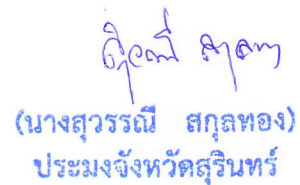 (นางสุวรรณี สกุลทอง)
ประมงจังหวัดสุรินทร์